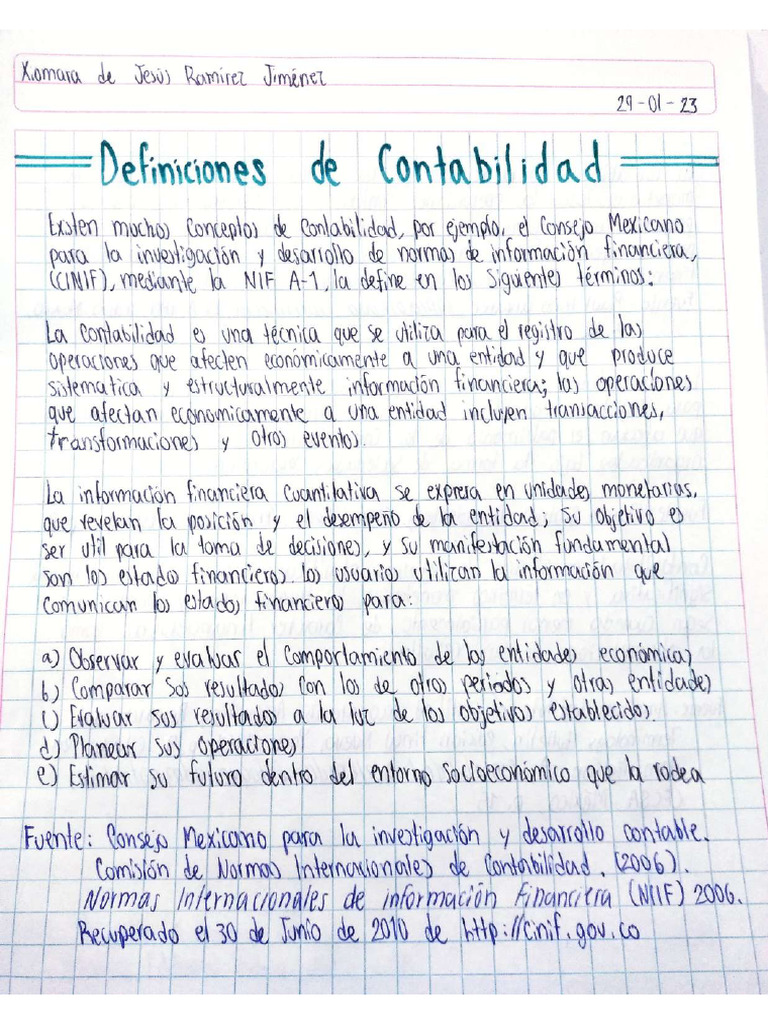 Xiomara de Jesús Ramírez Jiménez
29-01-23
Definiciones de Contabilidad
Existen muchos conceptos de contabilidad, por ejemplo, el Consejo Mexicano
para la investigación y desarrollo de normas de información financiera,
(CINIF), mediante la NIF A-1, la define en los siguientes términos:
La contabilidad es una técnica que se utiliza para el registro de las
operaciones que afecten económicamente a una entidad y que produce
sistematica y estructuralmente información financiera; las operaciones
que afectan economicamente a una entidad incluyen transacciones,
transformaciones y otros eventos.
La información financiera cuantitativa se expresa en unidades monetarias,
que revelan la posición y el desempeño de la entidad; su objetivo es
ser util para la toma de decisiones, y su manifestación fundamental
son los estados financieros. los usuarios utilizan la información que
comunican los estados financieros para:
a) Observar y evaluar el comportamiento de las entidades económicas
b) Comparar sos resultados con los de otros periodos y otras entidades
c) Evaluar sos resultados a la luz de los objetivos establecidos.
d) Planear sus operaciones
e) Estimar su futuro dentro del entorno socioeconómico que la rodea
Fuente: Consejo Mexicano para la investigación y desarrollo contable.
Comisión de Normas Internacionales de Contabilidad. (2006).
Normas Internacionales de información Financiera (NIIF) 2006.
Recuperado el 30 de Junio de 2010 de http://cinif.gov.co